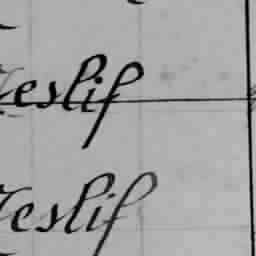 Teslif
Teslif